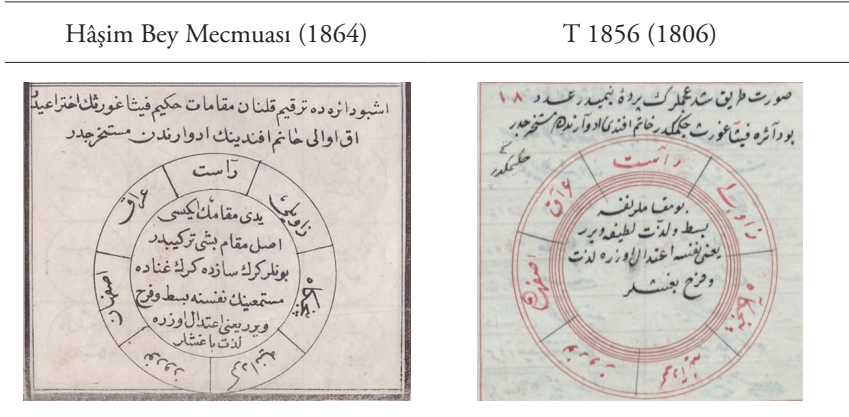 Hâşim Bey Mecmuası (1864)
T 1856 (1806)
اشبو دائره ده ترقیم قلنان مقامات حکیم فیثاغورثك اختراعیدر
اق اوالی خاتم افندینك ادوارندن مستخرجدر
راست
زاویلی
پنجگاه
گردانیه
نوروز
اصفهان
عراق
یدی مقامك ایکیسی
اصل مقام بشی ترکیبدر
بونلر کرك سازده کرك غناده
مستمعینك نفسنه بسط و فرح
ویرر یعنی اعتدال اوزره
لذت باغشلر
صورت طریق شد عجملرك پردۀ نیمیدر عدد ١٨
بو دآئره فیثاغورث حکیمکدر خاتم افندی ادوارندن مستخرجدر
راست
زاویلی
پنجگاه
نوروز
اصفهان
عراق
بو مقاملر نفسه
بسط ولذت لطیفه ویرر
یعنی نفسه اعتدال اوزره لذت
و فرح بغشلر